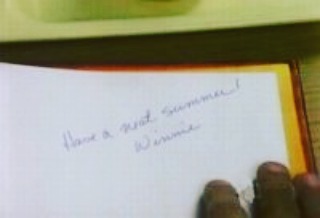 Have a neat summer!
Winnie